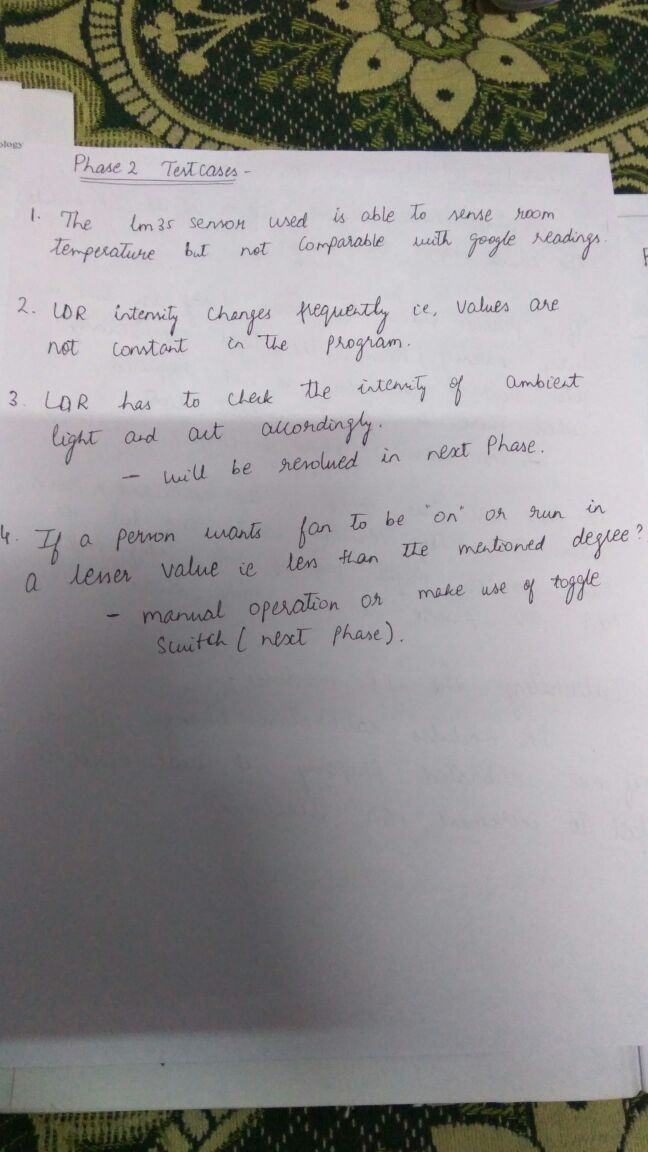 ology
Phase 2 Testcases -
1. The lm35 sensor used is able to sense room
temperature but not comparable with google readings.
2. LDR intensity changes frequently ie, values are
not constant in the program.
3. LDR has to check the intensity of ambient
light and act accordingly.
- will be resolved in next Phase.
4. If a person wants fan to be "on" or run in
a lesser value ie less than the mentioned degree?
- manual operation or make use of toggle
switch ( next Phase).